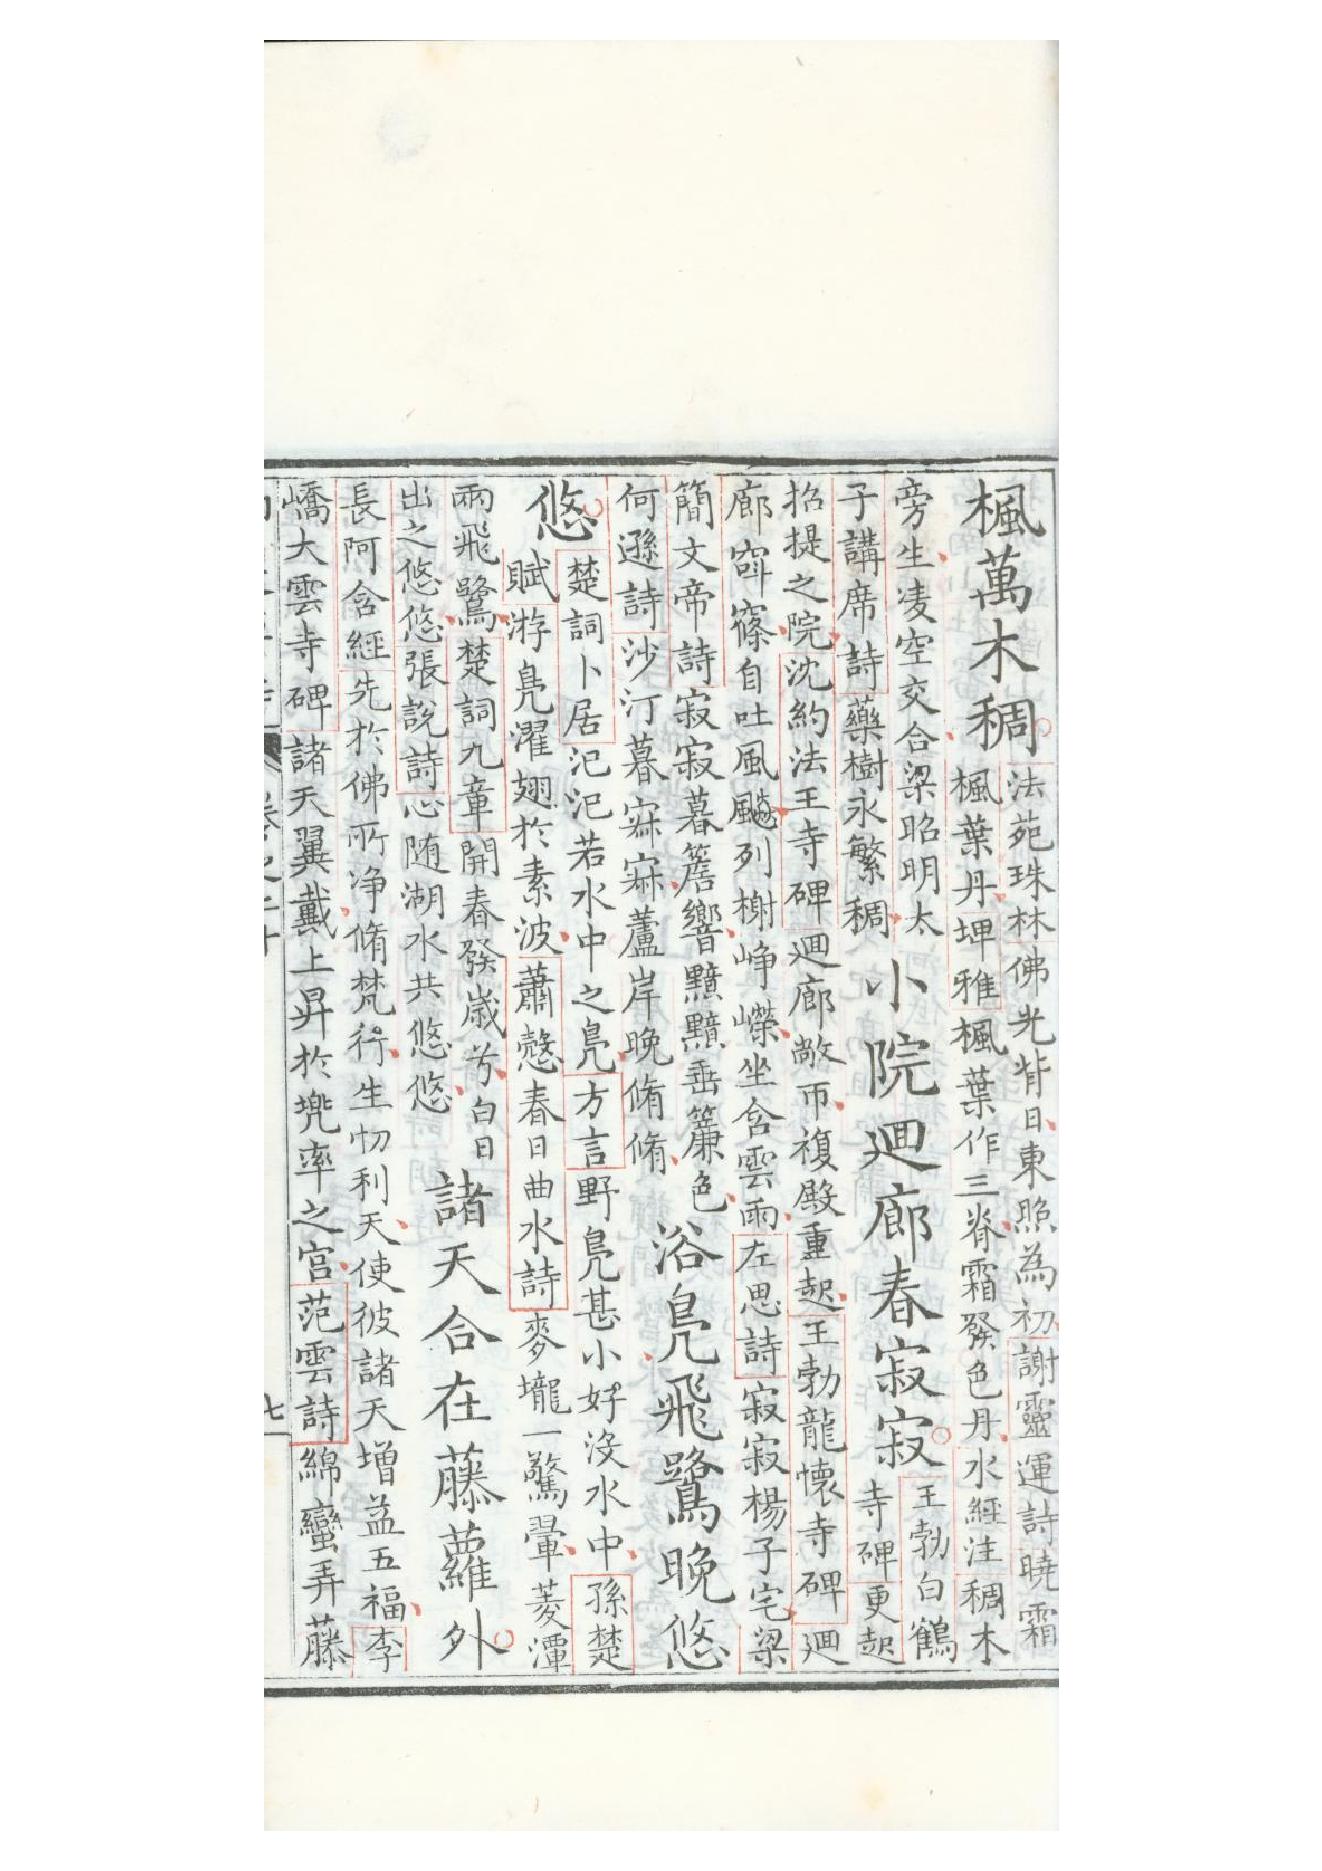 楓萬木稠
法苑珠林佛光背日東照為初謝靈運詩曉霜
楓葉丹埤雅楓葉作三脊霜發色丹水經注稠木
旁生凌空交合梁昭明太
子講席詩藥樹永繁稠
小院迴廊春寂寂
王勃白鶴
寺碑更起
招提之院沈約法王寺碑迴廊敞帀複殿重起王勃龍懷寺碑迴
廊篠自吐風飈列榭崢嶸坐含雲雨左思詩寂寂楊子宅梁
簡文帝詩寂寂暮簷響黯黯垂簾色
何遜詩沙汀暮寂寂蘆岸晚脩脩
浴鳧飛鷺晚悠
悠
楚詞卜居氾氾若水中之鳧方言野鳧甚小好沒水中孫楚
賦游鳧濯翅於素波蕭慤春日曲水詩麥壠一驚翬菱潭
兩飛鷺楚詞九章開春發歲兮白日
出之悠悠張說詩心随湖水共悠悠
諸天合在藤蘿外
長阿含經先於佛所净脩梵行生忉利天使彼諸天增益五福李
嶠大雲寺碑諸天翼戴上昇於兜率之宮范雲詩綿蠻弄藤